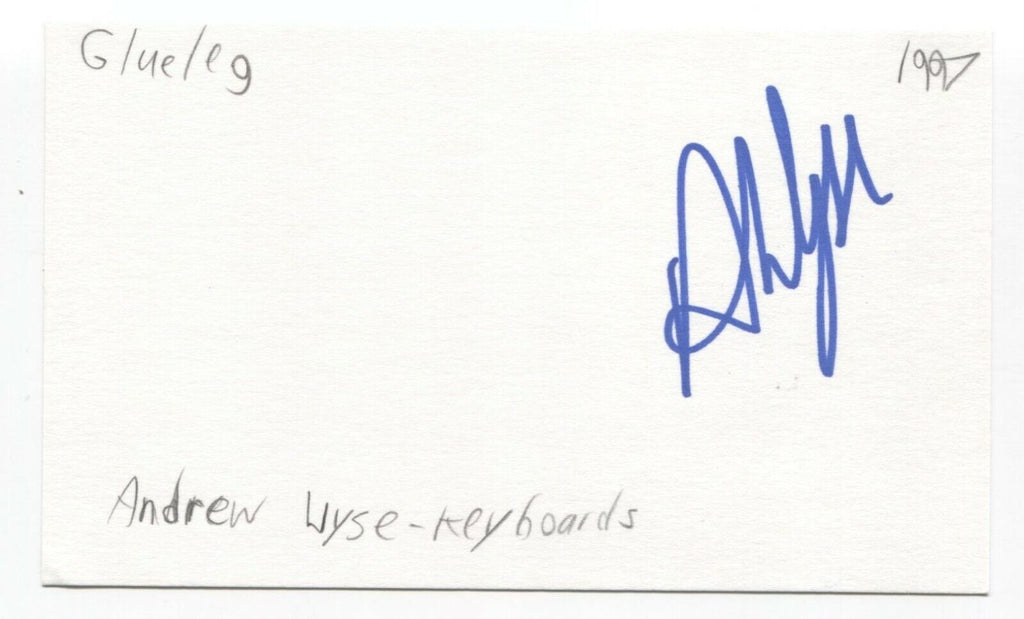 Glueleg
1997
Andrew Wyse-Keyboards